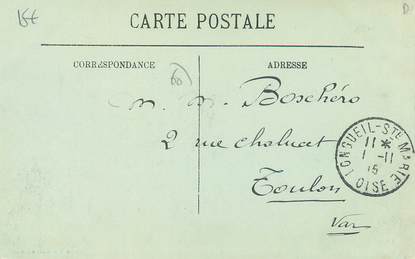 CARTE POSTALE
CORRESPONDANCE
ADRESSE
M. M. Boschéro
2 rue Chalucet
Toulon
Var
LONGUEIL-STE MARIE
OISE
11 *
1 -11
15